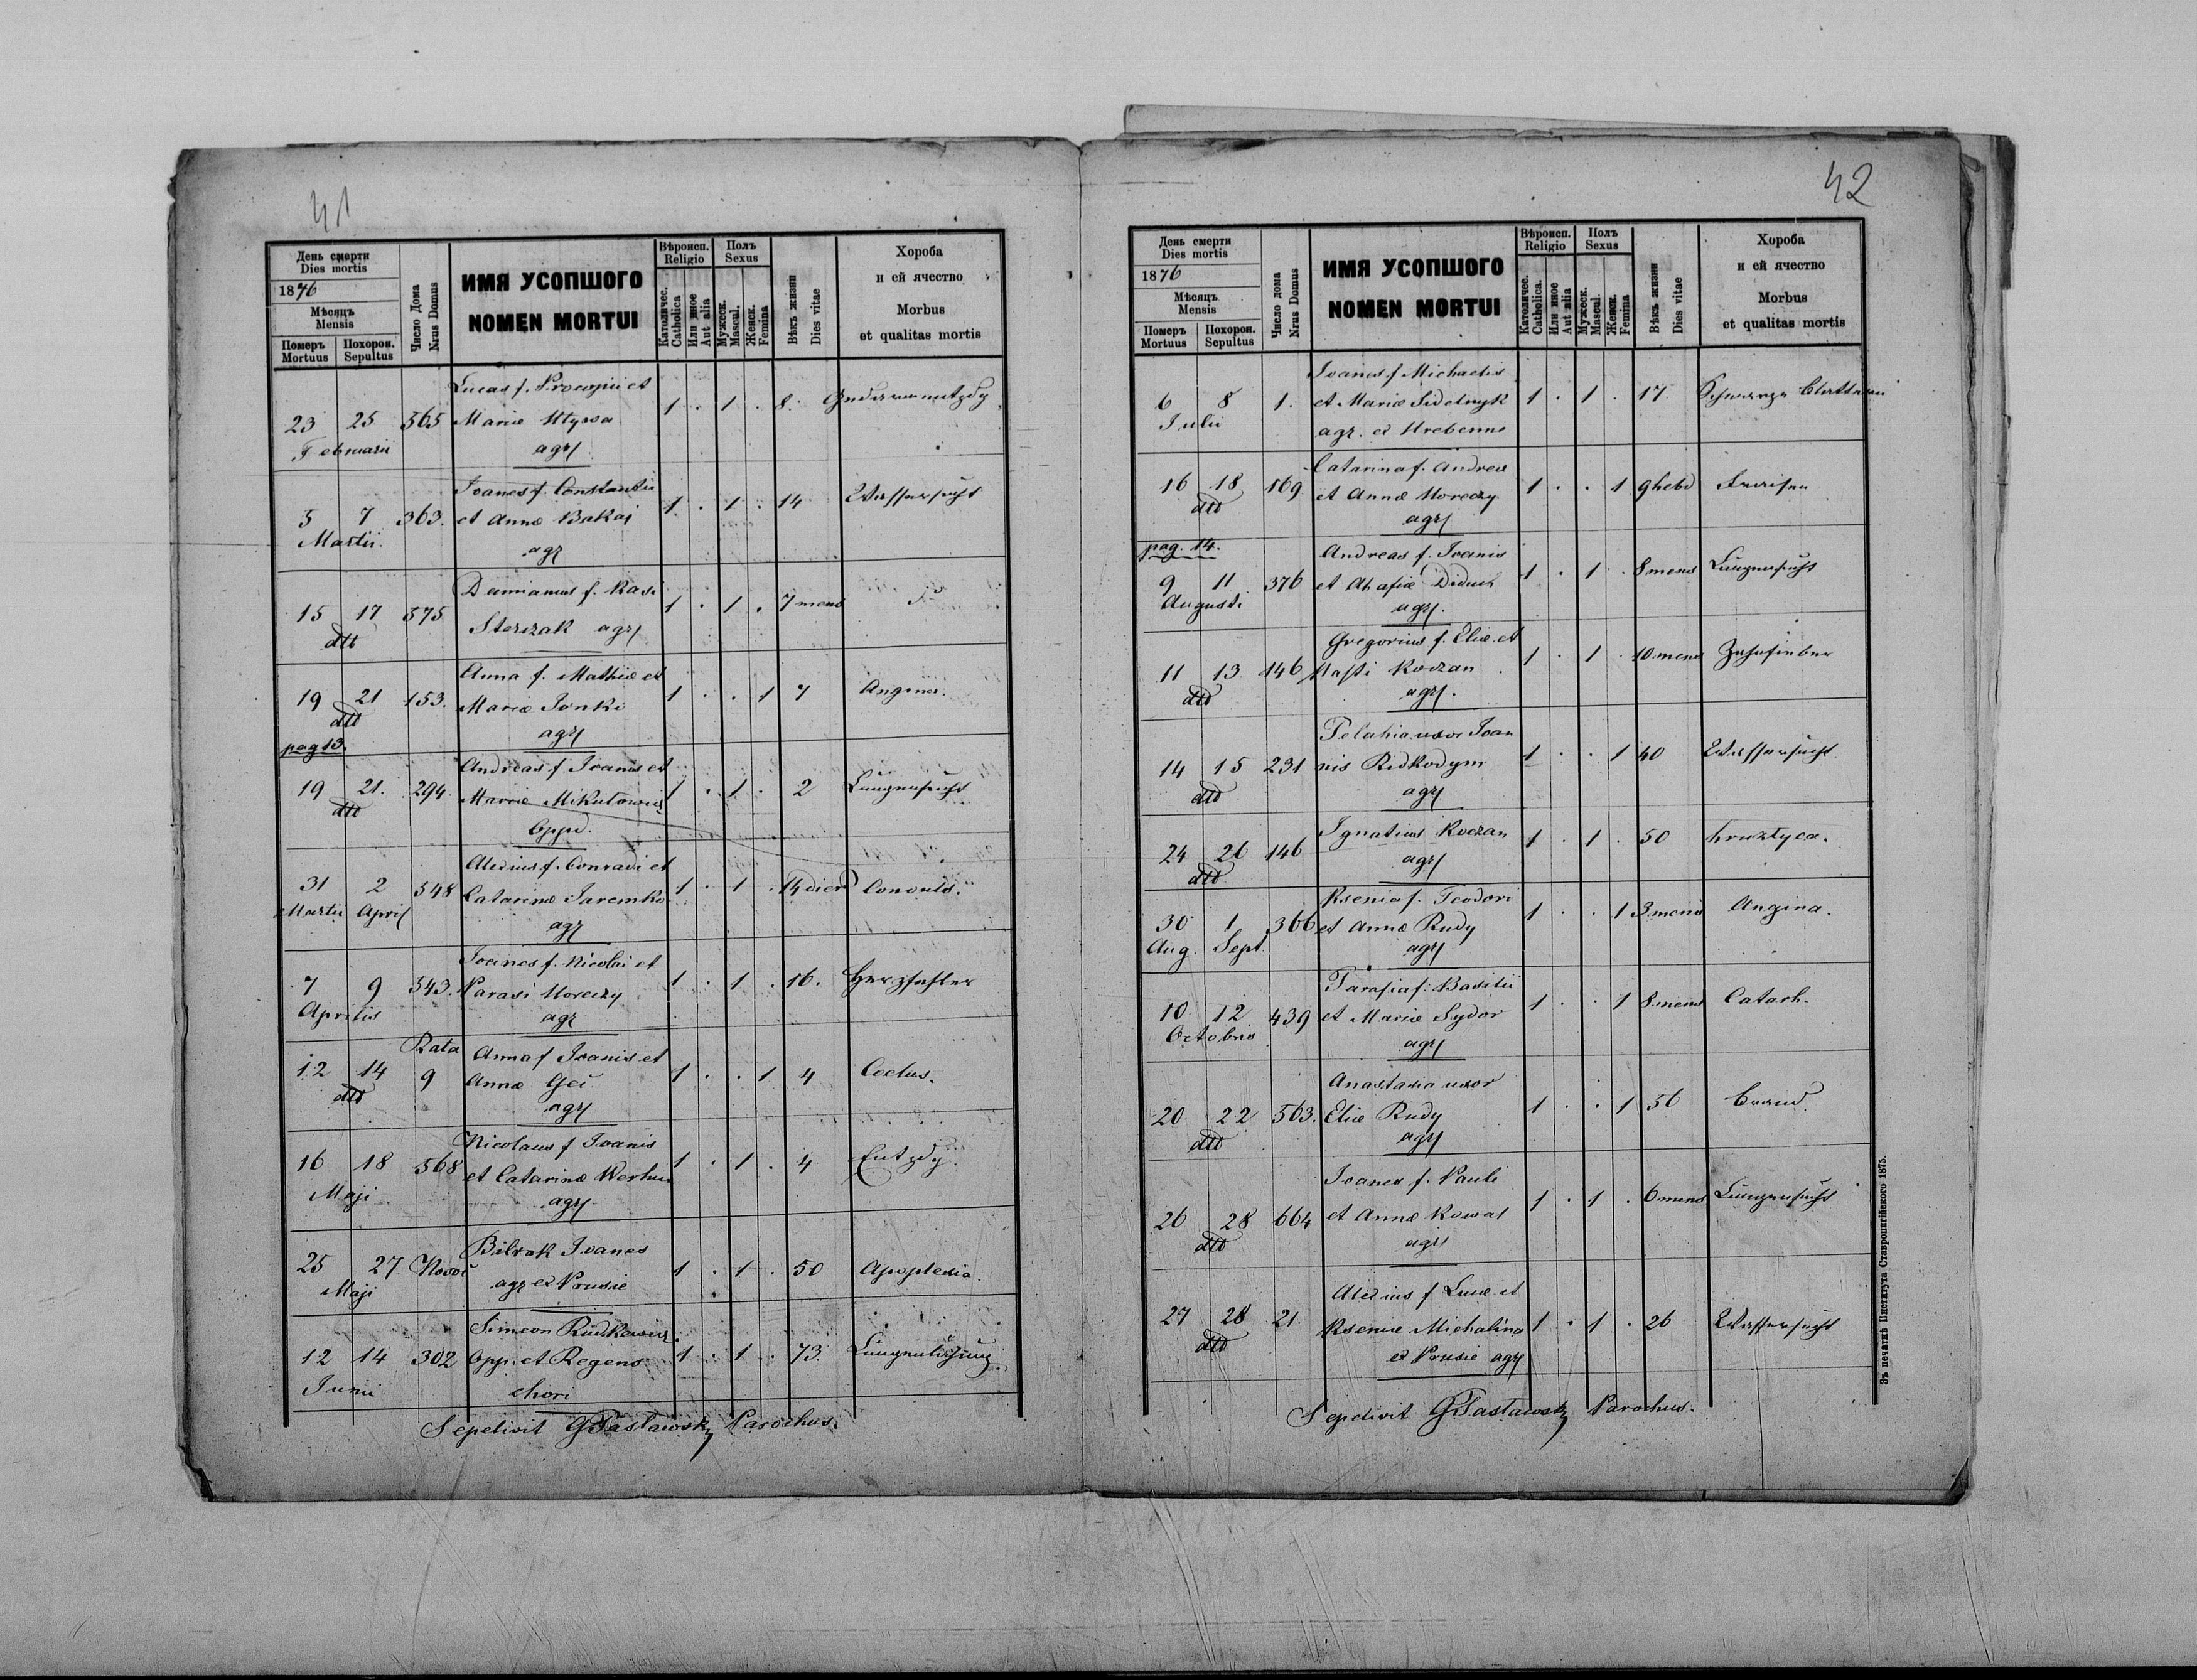 41
День смерти
Dies mortis
1876
Мѣсяцъ
Mensis
Померъ
Mortuus
Похорон.
Sepultus
Число Дома
Nrus Domus
ИМЯ УСОПШОГО
NOMEN MORTUI
Вѣроисп.
Religio
Католичес.
Catholica
Или иное
Aut alia
Полъ
Sexus
Мужеск.
Mascul.
Женск.
Femina
Вѣкъ жизни
Dies vitae
Хороба
и ей ячество
Morbus
et qualitas mortis
Lucas f. Procopii et
23 25 565 Mariæ 1 . 1 . 8.
Februarii agr
Joanes f. Constantii
5 7 363. et Annæ Bakaj 1 . 1 . 14 Wassersucht
Martii. agr
Damianus f. Kasi
15 17 575 Sterczak agr 1 . 1 . 7 mens do
dtto
Anna f. Mathiæ et
19 21 153. Mariæ Jonki 1 . . 1 7 Angina.
dtto agr
pag 13.
Andreas f. Joanis et
19 21. 294. Mariæ Mikulowicz 1 . 1 . 2 Lungensucht
dtto Oppid.
Alexius f. Conradi et
31 2 548 Catarinæ Jaremko 1 . 1 . 14 dier Convuls.
Martii April agr
Joanes f. Nicolai et
7 9 543. Parasi Moroczy 1 . 1 . 16. Herzfehler
Aprilis agr
Rata Anna f Joanis et
12 14 9 Annæ Geć 1 . . 1 4
dtto agr
Nicolaus f Joanis
16 18 568 et Catarinæ Werhun 1 . 1 . 4 Entzdg.
Maji agr
Bilrak Joanes
25 27 agr ex Prusie 1 . 1 . 50 Apoplexia.
Maji
Simeon Rudkowicz.
12 14 302 Opp. et Regens 1 . 1 . 73. Lungenlähmung.
Junii chori
Sepelivit GPasławsky Parochus.
42
День смерти
Dies mortis
1876
Мѣсяцъ
Mensis
Померъ
Mortuus
Похорон.
Sepultus
Число дома
Nrus Domus
ИМЯ УСОПШОГО
NOMEN MORTUI
Вѣроисп.
Religio
Католичес.
Catholica.
Или иное
Aut alia
Полъ
Sexus
Мужеск.
Mascul.
Женск.
Femina
Вѣкъ жизни
Dies vitae
Хороба
и ей ячество
Morbus
et qualitas mortis
Joanes f Michaelis
6 8 1. et Mariæ Sidelnyk 1 . 1 . 17 Schwarze Blattern
Julii agr. ex Hrebenne
Catarina f. Andreæ
16 18 169 et Annæ Moroczy 1 . . 1 9 hebd Fraisen
dtto agr
pag. 14.
Andreas f. Joanis
9 11 376 et Ahafiæ Diduch 1 . 1 . 8 mens Lungensucht
Augusti agr.
Gregorius f. Eliæ et
11 13 146 Nasti Koczan 1 . 1 . 10 mens Zahnfieber
dtto agr.
Pelahia uxor Joan
14 15 231 nis Ridkodym 1 . . 1 40 Wassersucht
dtto agr
24 26 146 Ignatius Koczan 1 . 1 . 50 hruztyca.
dtto agr
Ksenia f. Teodori
30 1 366 et Annæ Rudy 1 . . 1 3 mens Angina.
Aug. Sept. agr
Parasia f. Basilii
10 12 439 et Mariæ Sydor 1 . . 1 8 mens Catarh.
Octobris agr
Anastasia uxor
20 22 563. Eliæ Rudy 1 . . 1 56 Brand.
dtto agr
Joanes f. Pauli
26 28 664 et Annæ Kowal 1 . 1 . 6 mens Lungensucht
dtto agr
Alexius f Lucæ et
27 28 21 Kseniæ Michalina 1 . 1 . 26 Wassersucht
dtto ex Prusie agr
Sepelivit GPasławsky Parochus.
Зъ печатнѣ Института Ставропигійского 1875.